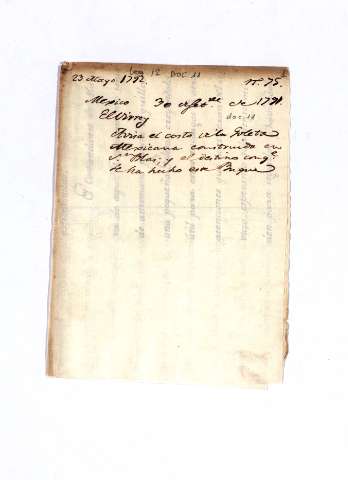 Leg 12 Doc 11
23 Mayo 1792. Nº 75.
Mexico 30 de de 1791.
El Virrey doc 11
Avisa el costo de la Goleta
Mexicana construida en
Sn Blas; y el destino con qe
se ha hecho este Buque